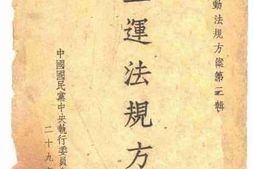 動法規方案第二輯
運法規方
中國國民黨中央執行委員
二十九年